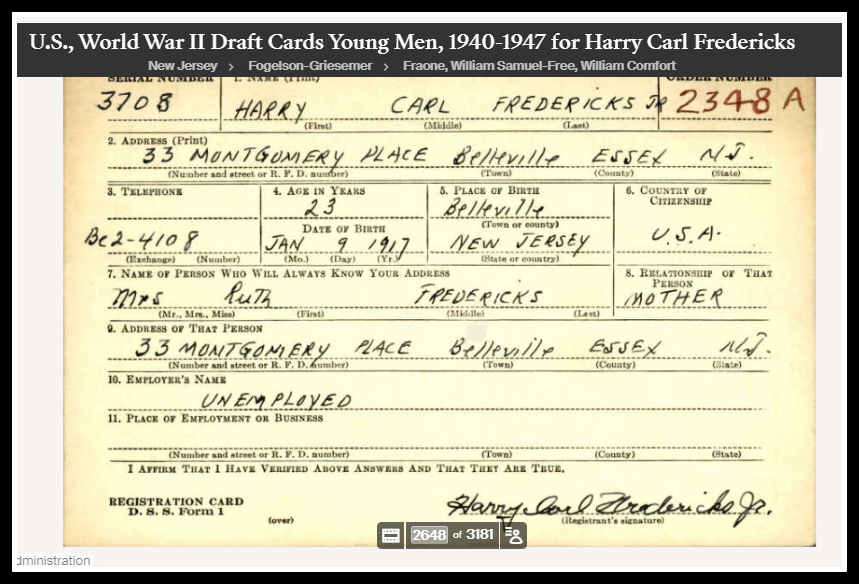 U.S., World War II Draft Cards Young Men, 1940-1947 for Harry Carl Fredericks
New Jersey > Fogelson-Griesemer > Fraone, William Samuel-Free, William Comfort
SERIAL NUMBER 1. NAME (Print) ORDER NUMBER
3708 HARRY CARL FREDERICKS JR 2348 A
(First) (Middle) (Last)
2. ADDRESS (Print)
33 MONTGOMERY PLACE Belleville ESSEX N.J.
(Number and street or R. F. D. number) (Town) (County) (State)
3. TELEPHONE 4. AGE IN YEARS 5. PLACE OF BIRTH 6. COUNTRY OF CITIZENSHIP
23 Belleville
DATE OF BIRTH (Town or county)
Be2-4108 JAN 9 1917 NEW JERSEY U.S.A.
(Exchange) (Number) (Mo.) (Day) (Yr.) (State or country)
7. NAME OF PERSON WHO WILL ALWAYS KNOW YOUR ADDRESS 8. RELATIONSHIP OF THAT PERSON
Mrs Ruth FREDERICKS MOTHER
(Mr., Mrs., Miss) (First) (Middle) (Last)
9. ADDRESS OF THAT PERSON
33 MONTGOMERY PLACE Belleville ESSEX N.J.
(Number and street or R. F. D. number) (Town) (County) (State)
10. EMPLOYER'S NAME
UNEMPLOYED
11. PLACE OF EMPLOYMENT OR BUSINESS
(Number and street or R. F. D. number) (Town) (County) (State)
I AFFIRM THAT I HAVE VERIFIED ABOVE ANSWERS AND THAT THEY ARE TRUE.
REGISTRATION CARD
D. S. S. Form 1
(over)
Harry Carl Fredericks Jr.
(Registrant's signature)
2648 of 3181
dministration